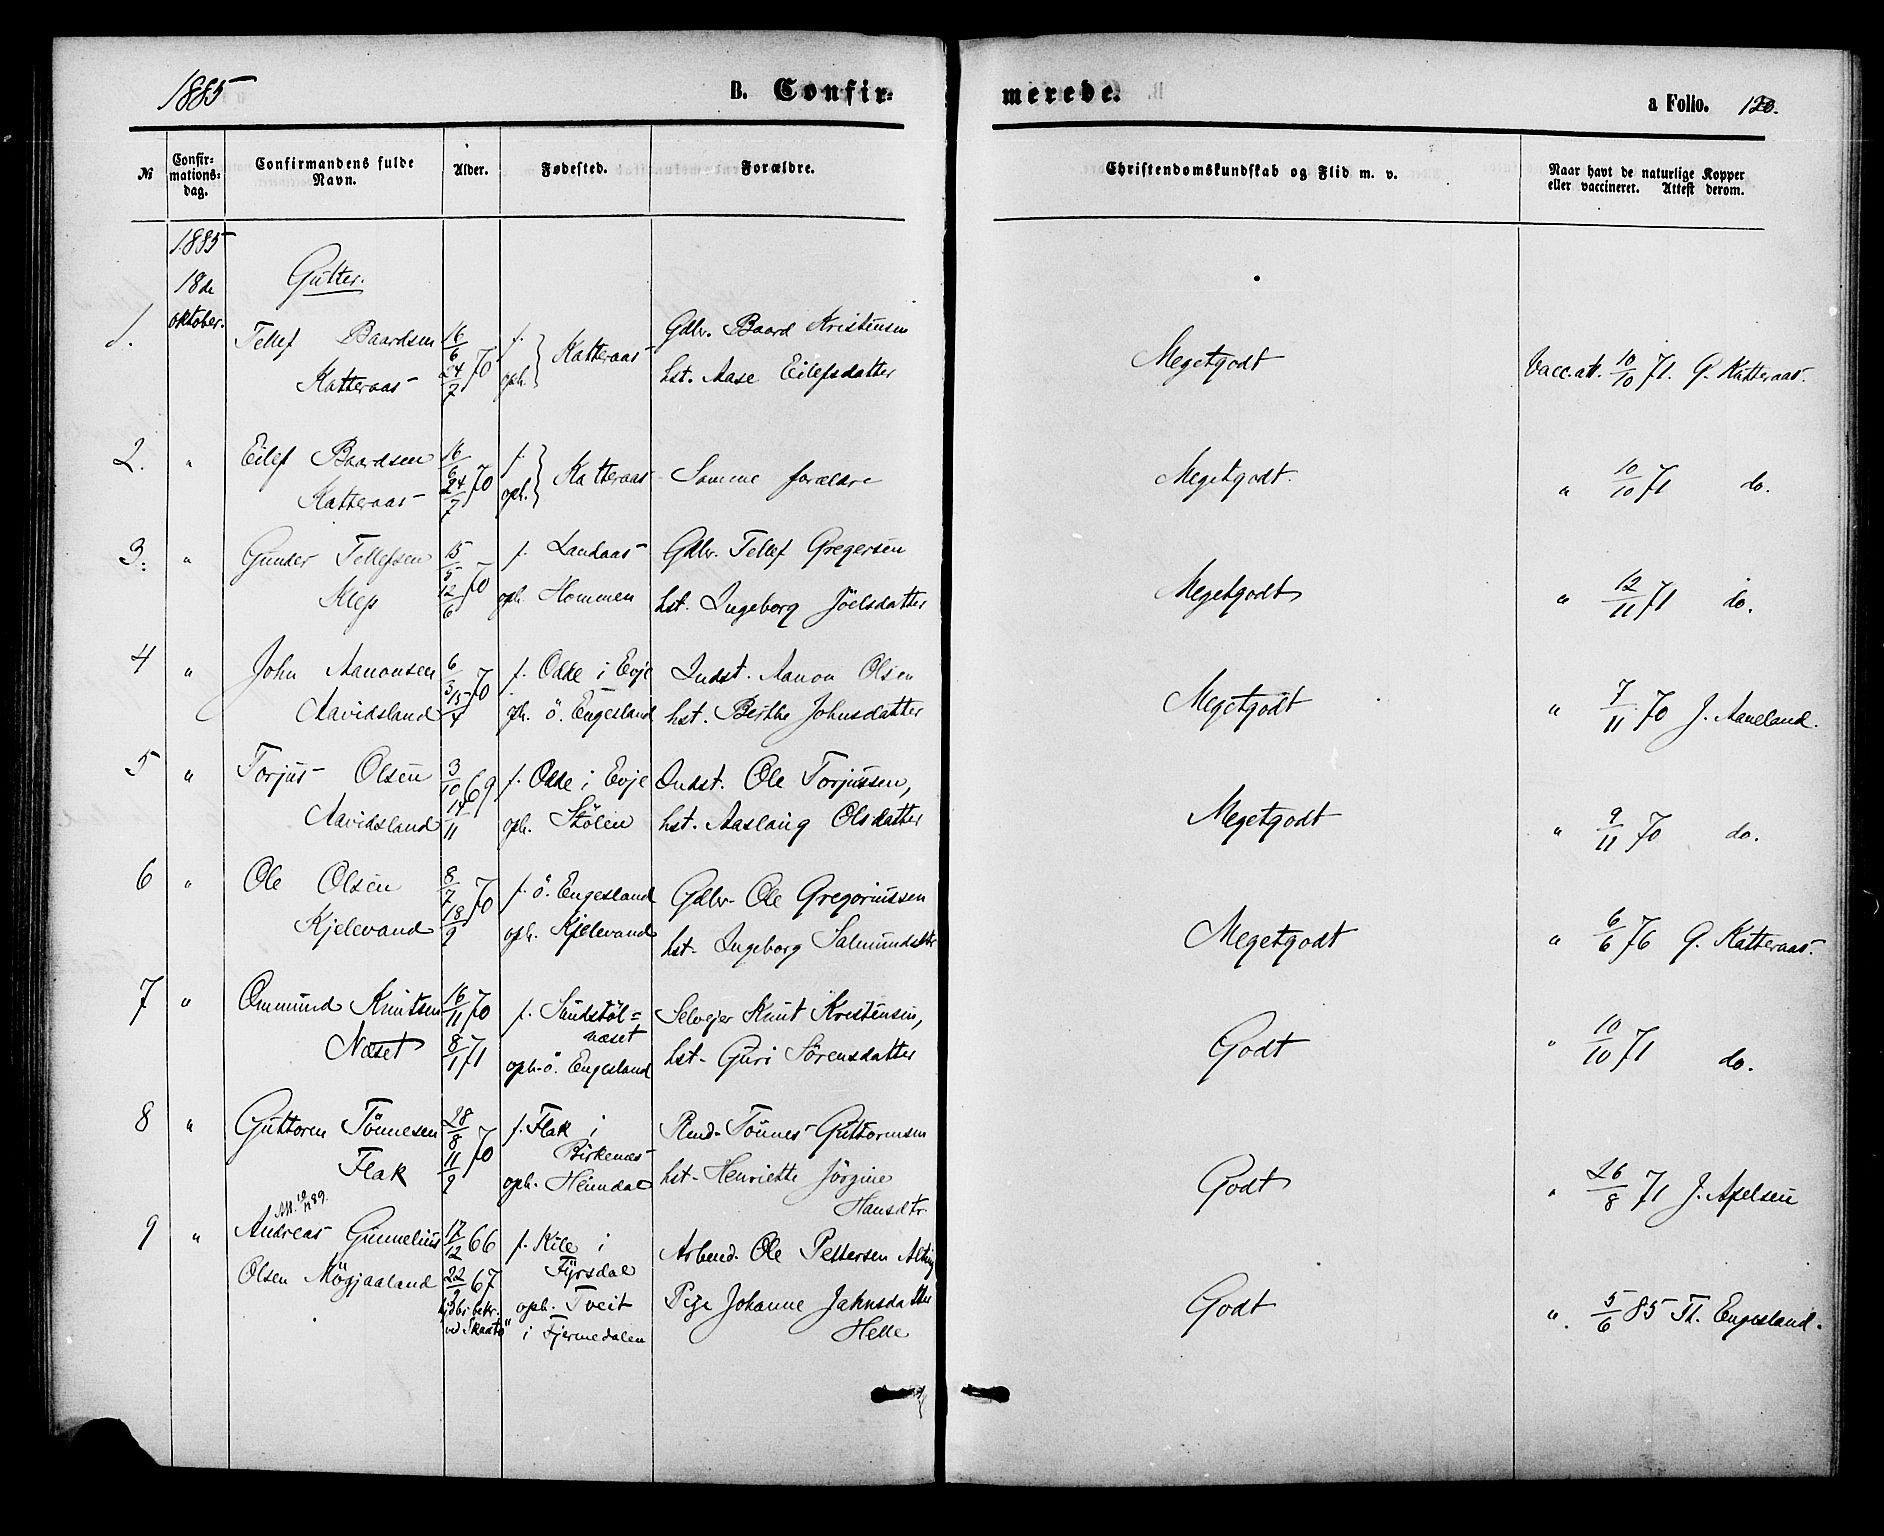 1885
B. Confir-
merede.
a Folio. 120.
№
Confir-
mations-
dag.
Confirmandens fulde
Navn.
Alder.
Fødested.
Forældre.
Christendomskundskab og Flid m. v.
Naar havt de naturlige Kopper
eller vaccineret. Attest derom.
1885
18de
oktober.
Gutter.
1. Tellef Baardsen 16/6 70 f. Katteraas Gdbr. Baard Kristensen Megetgodt Vacc. att. 10/10 71. G. Katteraas.
Katteraas 24/7 oph. hst. Aase Eilefsdatter
2. " Eilef Baardsen 16/6 70 f. Katteraas Samme forældre Megetgodt. " 10/10 71 do.
Katteraas 24/7 oph.
3. " Gunder Tellefsen 15/5 70 f. Landaas Gdbr. Tellef Gregersen Megetgodt " 12/11 71 do.
Klep 12/6 oph. Hommen hst. Ingeborg Joelsdatter
4 " John Aanonsen 6/3 70 f. Odde i Evje Indst. Aanon Olsen Megetgodt " 7/11 70 J. Aaneland.
Aavidsland 15/4 oph. ö. Engesland hst. Berthe Johnsdatter
5 " Torjus Olsen 3/10 69 f. Odde i Evje Indst. Ole Torjussen, Megetgodt " 9/11 70 do.
Aavidsland 14/11 oph. Stölen hst. Aaslaug Olsdatter
6 " Ole Olsen 8/7 70 f. ö. Engesland Gdbr. Ole Gregoriussen Megetgodt " 6/6 76 G. Katteraas.
Kjelevand 18/9 oph. Kjelevand hst. Ingeborg Salmundsdtr
7 " Ommund Knutsen 16/11 70 f. Sundstöl= Selvejer Knut Kristensen, Godt " 10/10 71 do.
næset
Næset 8/1 71 oph. ö. Engesland hst. Guri Sörensdatter
8 " Guttorm Tönnesen 28/8 70 f. Flak i Tönnes Guttormsen Godt " 26/8 71 J. Axelsen
Birkenæs
Flak 11/9 oph. Heimdal hst. Henriette Jörgine
Hansdtr.
Att. 89.
9 " Andreas Gunnelius 17/12 66 f. Kile i Arbeid. Ole Pettersen Godt ". 5/6 85 Th. Engesland.
Fyrsdal
Olsen Mögjaaland 22/9 67 oph. Tveit Pige Johanne Jahnsdatter
hjdb. bekr. i Fjermedalen Helle
ved Skaatö